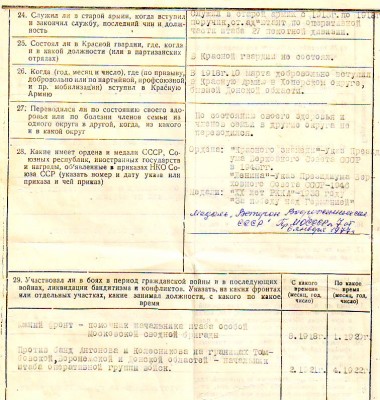 24. Служил ли в старой армии, когда вступил
и закончил службу, последний чин и долж-
ность
Служил в старой армии с 1915г. по 1918
части штаба 27 пехотной дивизии.
25. Состоял ли в Красной гвардии, где, когда
и в какой должности (или в партизанских
отрядах)
В Красной гвардии не состоял.
26. Когда (год, месяц и число), где (по призыву,
добровольно или по партийной, профсоюзной
и пр. мобилизации) вступил в Красную
Армию
В 1918г. 10 марта добровольно вступил
в Красную Армию в Хоперском округе,
бывшей Донской области.
27. Переводился ли по состоянию своего здо-
ровья или по болезни членов семьи из
одного округа в другой, когда, из какого
и в какой округ
По состоянию своего здоровья и
членов семьи в другие округа не
переводился.
28. Какие имеет ордена и медали СССР, Со-
юзных республик, иностранных государств
и награды, объявленные в приказах НКО Со-
юза ССР (указать номер и дату указа или
приказа и чей приказ)
Ордена: "Красного знамени"-Указ Прези-
диума Верховного Совета СССР
в 194 г.
"Ленина"-Указ Президиума Вер-
ховного Совета СССР-194
Медали: РККА"-1938
"За победу над Германией"
Медаль "Ветеран Вооруженных Сил
СССР"
29. Участвовал ли в боях в период гражданской войны и в последующих
войнах, ликвидации бандитизма и конфликтов. Указать, на каких фронтах
или отдельных участках, какие занимал должности, с какого по какое
время
С какого
времени
(месяц, год,
число)
По какое
время
(месяц, год,
число)
фронт - помощник начальника штаба особой
Московской сводной бригады
Против банд Антонова и Колесникова на границах Там-
бовской, Воронежской и Донской областей - начальник
штаба оперативной группы войск.
4.1922г.